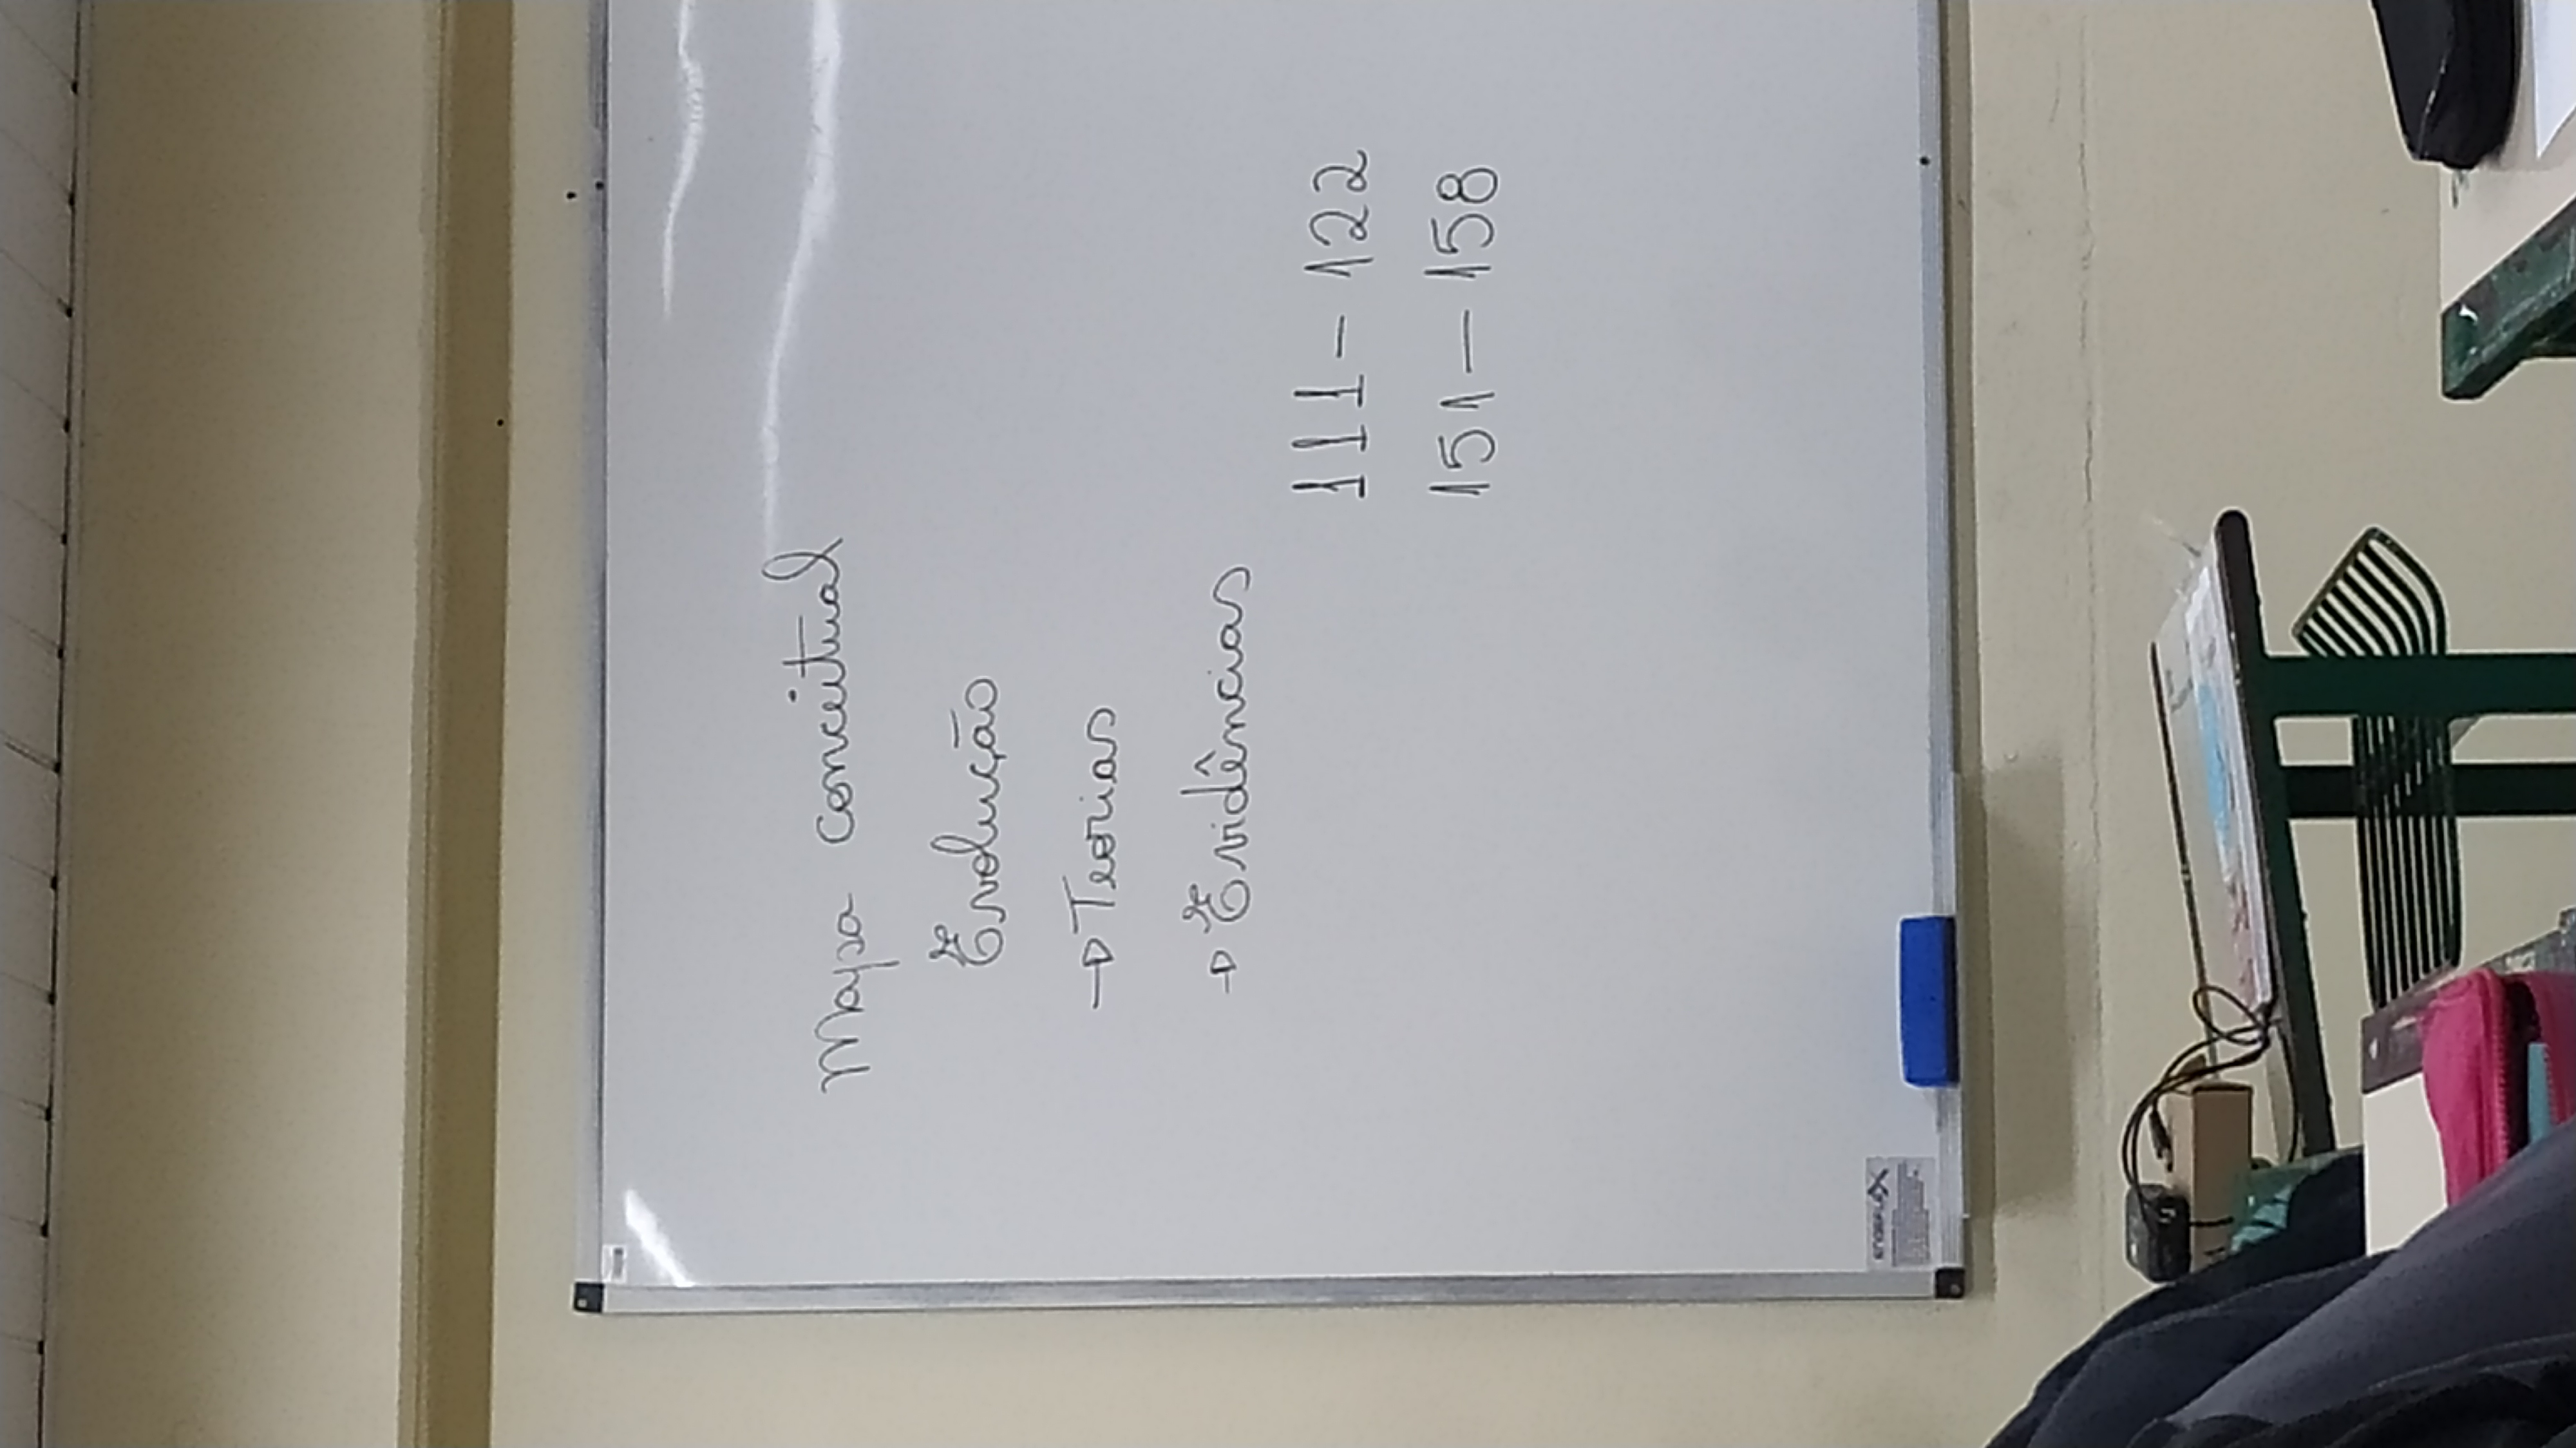 Mapa conceitual
Evolução
→ Teorias
→ Evidências
111 – 122
151 – 158